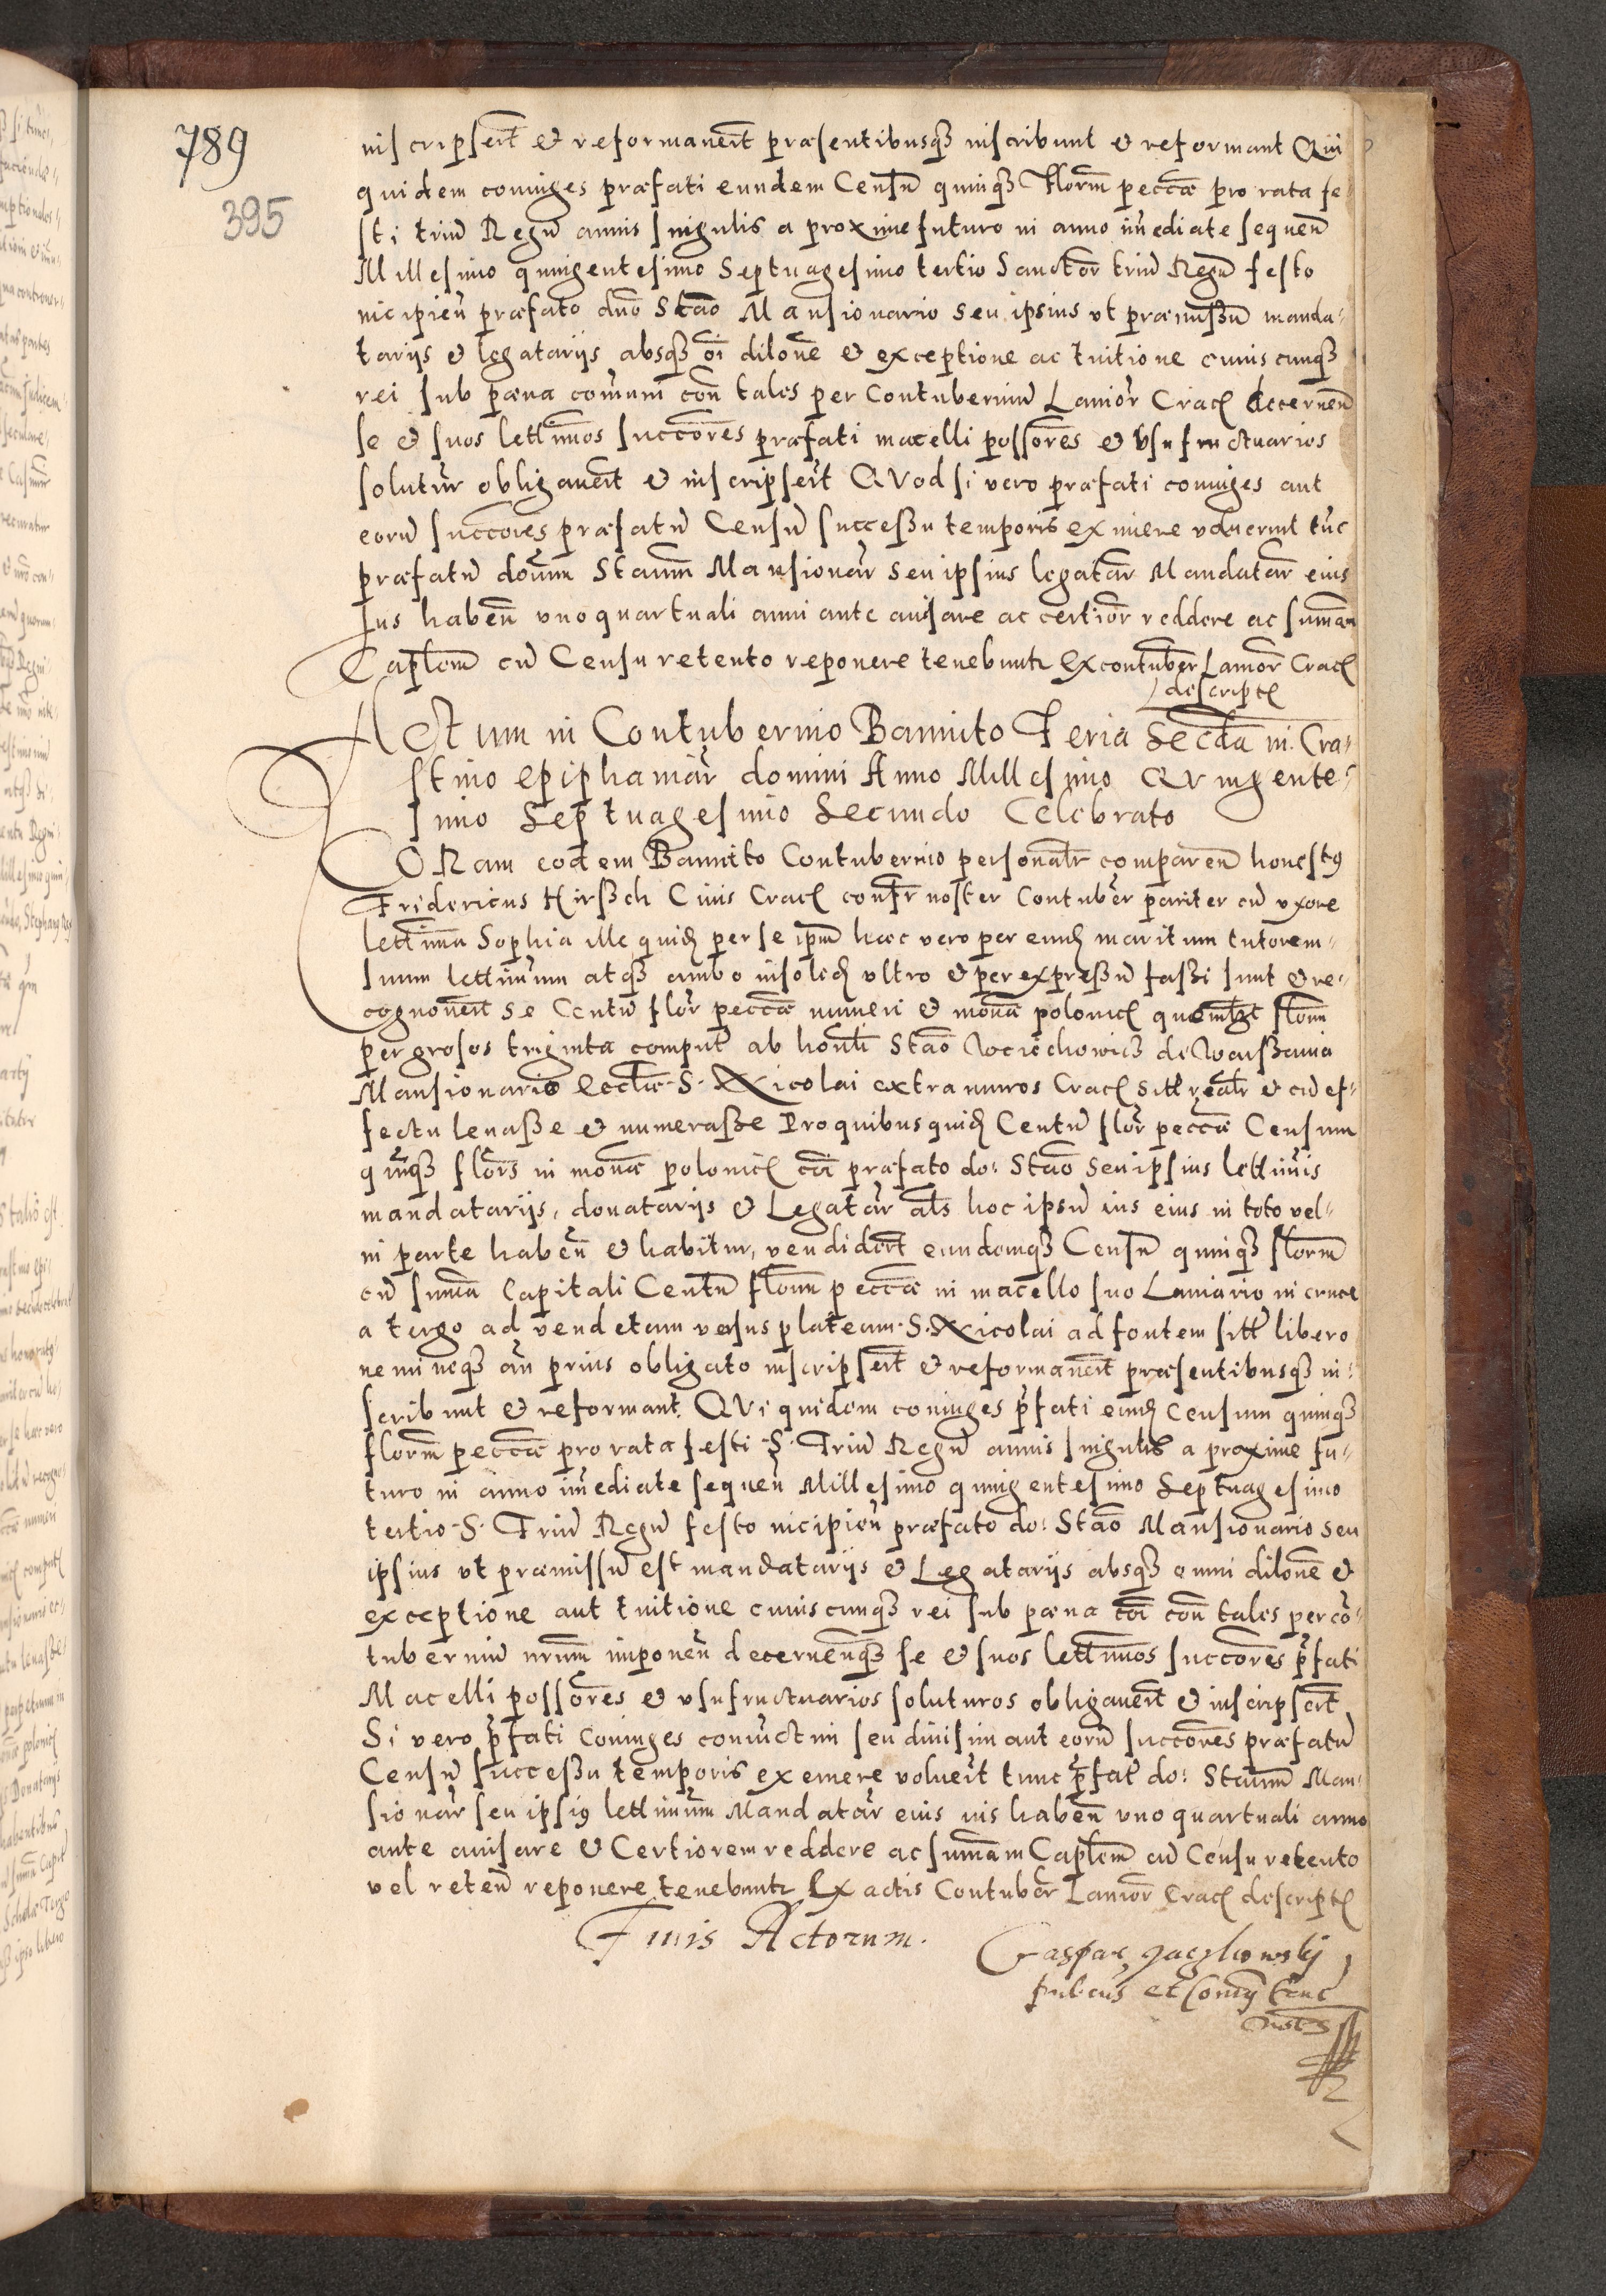 789
395
inscripserūt et reformauerūt præsentibusqȝ inscribunt et reformant Qui
quidem coniuges præfati eundem Censū quinqȝ Florm̄ pecc̄æ pro rata fe-
sti triū Regū annis singulis a proxime futuro in anno īmediate sequen̄
Millesimo quingentesimo Septuagesimo tertio Sanctor̄ triū Regū festo
incipien̄ præfato dn̄o Stāo Mansionario seu ipsius ut præmissū manda-
tarijs et legatarijs absqȝ oī dilōne et exceptione ac tuitione cuiuscunqȝ
rei sub pæna com̄uni con̄tales per Contuberniū Lanior̄ Crac̄ decernen̄
se et suos lettīmos succ̄ores præfati macelli poss̄ores et Vsufructuarios
solutur̄ obligauerūt et inscripserūt QVod si vero præfati coniuges aut
eorū succ̄ores præfatū Censū successu temporis eximere voluerint tūc
præfatū dom̄ Stanm̄ Mansionar̄ seu ipsius legatar̄ Mandatar̄ eius
Jus haben̄ vno quartuali anni ante auisare ac certior̄ reddere ac sum̄am
Capl̄em cū Censu retento reponere tenebunt̄r Ex contuber̄ Lanior̄ Crac̄
descript̄
ACtum in Contubernio Bannito Feria Sec̄da in Cra-
stino Epiphaniar̄ domini Anno Millesimo QVingente-
simo Septuagesimo Secundo Celebrato
CORam eodem Bannito Contubernio personalr̄ comparen̄ honestꝰ
Fridericus Hirssch Ciuis Crac̄ confr̄ noster Contuber̄ pariter cū vxore
lettīma Sophia ille quid̄ per se ipm̄ hæc vero per eund̄ maritum tutorem
suum lettimum atqȝ ambo insolid̄ vltro et per expressū fassi sunt et re-
cognouerūt se Centū flor̄ pecc̄æ numeri et mon̄æ polonic̄ quemlibet flōrn
per grosos triginta comput̄ ab hon̄li Stāo de Warssauia
Mansionario Eccl̄iæ S. Nicolai extra muros Crac̄ sitt̄ realr̄ et cū ef-
fectu leuasse et numerasse Pro quibus quid̄ Centū flor̄ pecc̄æ Censum
quīqȝ flor̄s in mon̄æ polonic̄ cōi præfato do: Stāo seu ipsius lettīmis
mandatarijs, donatarijs et Legatar̄ al̄s hoc ipsū ius eius in toto vel
in parte haben̄ et habitur, vendiderūt eundemqȝ Censū quinqȝ florm̄
cū sum̄a Capitali Centū flōrn peccæ in macello suo Laniario in cruce
a tergo ad vendetam versus plateam S. Nicolai ad fontem sitt̄ libero
nemineqȝ an̄ prius obligato inscripserūt et reformauerūt præsentibusqȝ in-
scribunt et reformant. QVi quidem coniuges p̄fati eund̄ censum quinqȝ
florm̄ pecc̄æ pro rata festi S. Triū Regū annis singulis a proxime fu-
turo in anno īmediate sequen̄ Millesimo quingentesimo Septuagesimo
tertio S. Triū Regū festo incipien̄ præfato do: Stāo Mansionario seu
ipsius ut præmissū est mandatarijs et Legatarijs absqȝ omni dilōne et
exceptione aut tuitione cuiuscunqȝ rei sub pæna cōi con̄tales per cō-
tuberniū nrūm imponen̄ decernen̄qȝ se et suos lettīmos succ̄ores p̄fati
Macelli poss̄ores et vsufructuarios soluturos obligauerūt et inscripserūt
Si vero p̄fati Coniuges coniūctim seu diuisim aut eorū succ̄ores præfatū
Censū successu temporis exemere voluerīt tunc p̄fat̄ do: Stanm̄ Man-
sionar̄ seu ipsiꝰ lettimūm Mandatar̄ eius ius haben̄ vno quartuali anno
ante auisare et Certiorem reddere ac sum̄am Capl̄em cū Censu retento
vel reten̄ reponere tenebunt̄r Ex actis Contuber̄ Lanior̄ Crac̄ descript̄
Finis Actorum.
Gaspar